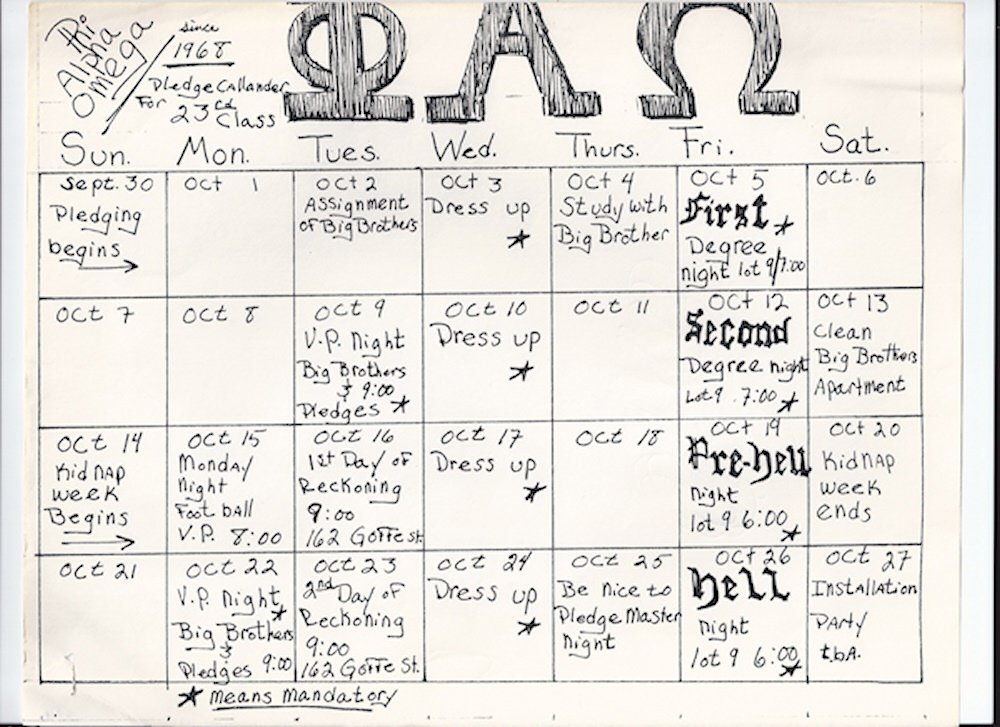 Phi
Alpha
Omega
since
1968
Pledge Callander
For 23rd
Class
ΦΑΩ
Sun. Mon. Tues. Wed. Thurs. Fri. Sat.
Sept. 30
Pledging
begins
Oct 1
Oct 2
Assignment
of Big Brothers
Oct 3
Dress up
★
Oct 4
Study with
Big Brother
Oct 5
First ★
Degree
night lot 9/7:00
Oct. 6
Oct 7
Oct 8
Oct 9
V.P. Night
Big Brothers
& 9:00
Pledges ★
Oct 10
Dress up
★
Oct 11
Oct 12
Second
Degree night
Lot 9 7:00 ★
Oct 13
Clean
Big Brothers
Apartment
Oct 14
Kidnap
week
Begins
Oct 15
Monday
Night
Foot ball
V.P. 8:00
Oct 16
1st Day of
Reckoning
9:00
162 Goffe St.
Oct 17
Dress up
★
Oct 18
Oct 19
Pre-hell
night
lot 9 6:00 ★
Oct 20
Kidnap
week
ends
Oct 21
Oct 22
V.P. Night ★
Big Brothers
&
Pledges 9:00
Oct 23
2nd Day of
Reckoning
9:00
162 Goffe St.
Oct 24
Dress up
★
Oct 25
Be nice to
Pledge Master
Night
Oct 26
Hell
night
lot 9 6:00 ★
Oct 27
Installation
Party
t.b.A.
★ Means Mandatory